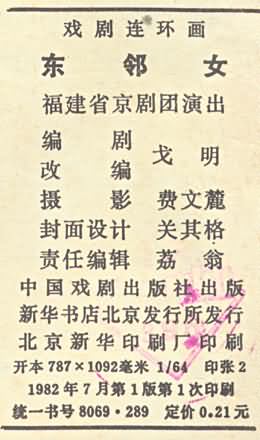 戏剧连环画
东邻女
福建省京剧团演出
编剧
改编 戈明
摄影 费文麓
封面设计 关其格
责任编辑 荔翁
中国戏剧出版社出版
新华书店北京发行所发行
北京新华印刷厂印刷
开本787×1092毫米 1/64 印张2
1982年7月第1版第1次印刷
统一书号8069·289 定价0.21元